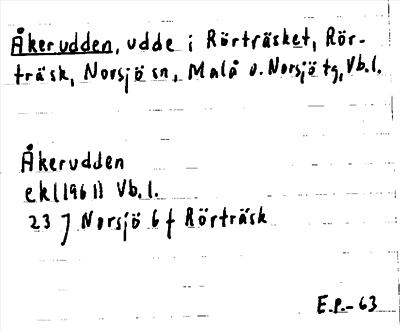 Åkerudden, udde i Rörträsket, Rör-
träsk, Norsjö sn, Malå o. Norsjö tg, Vb.l.
Åkerudden
ek((1961) Vb.l.
23 J Norsjö 6 f Rörträsk
E.P.-63